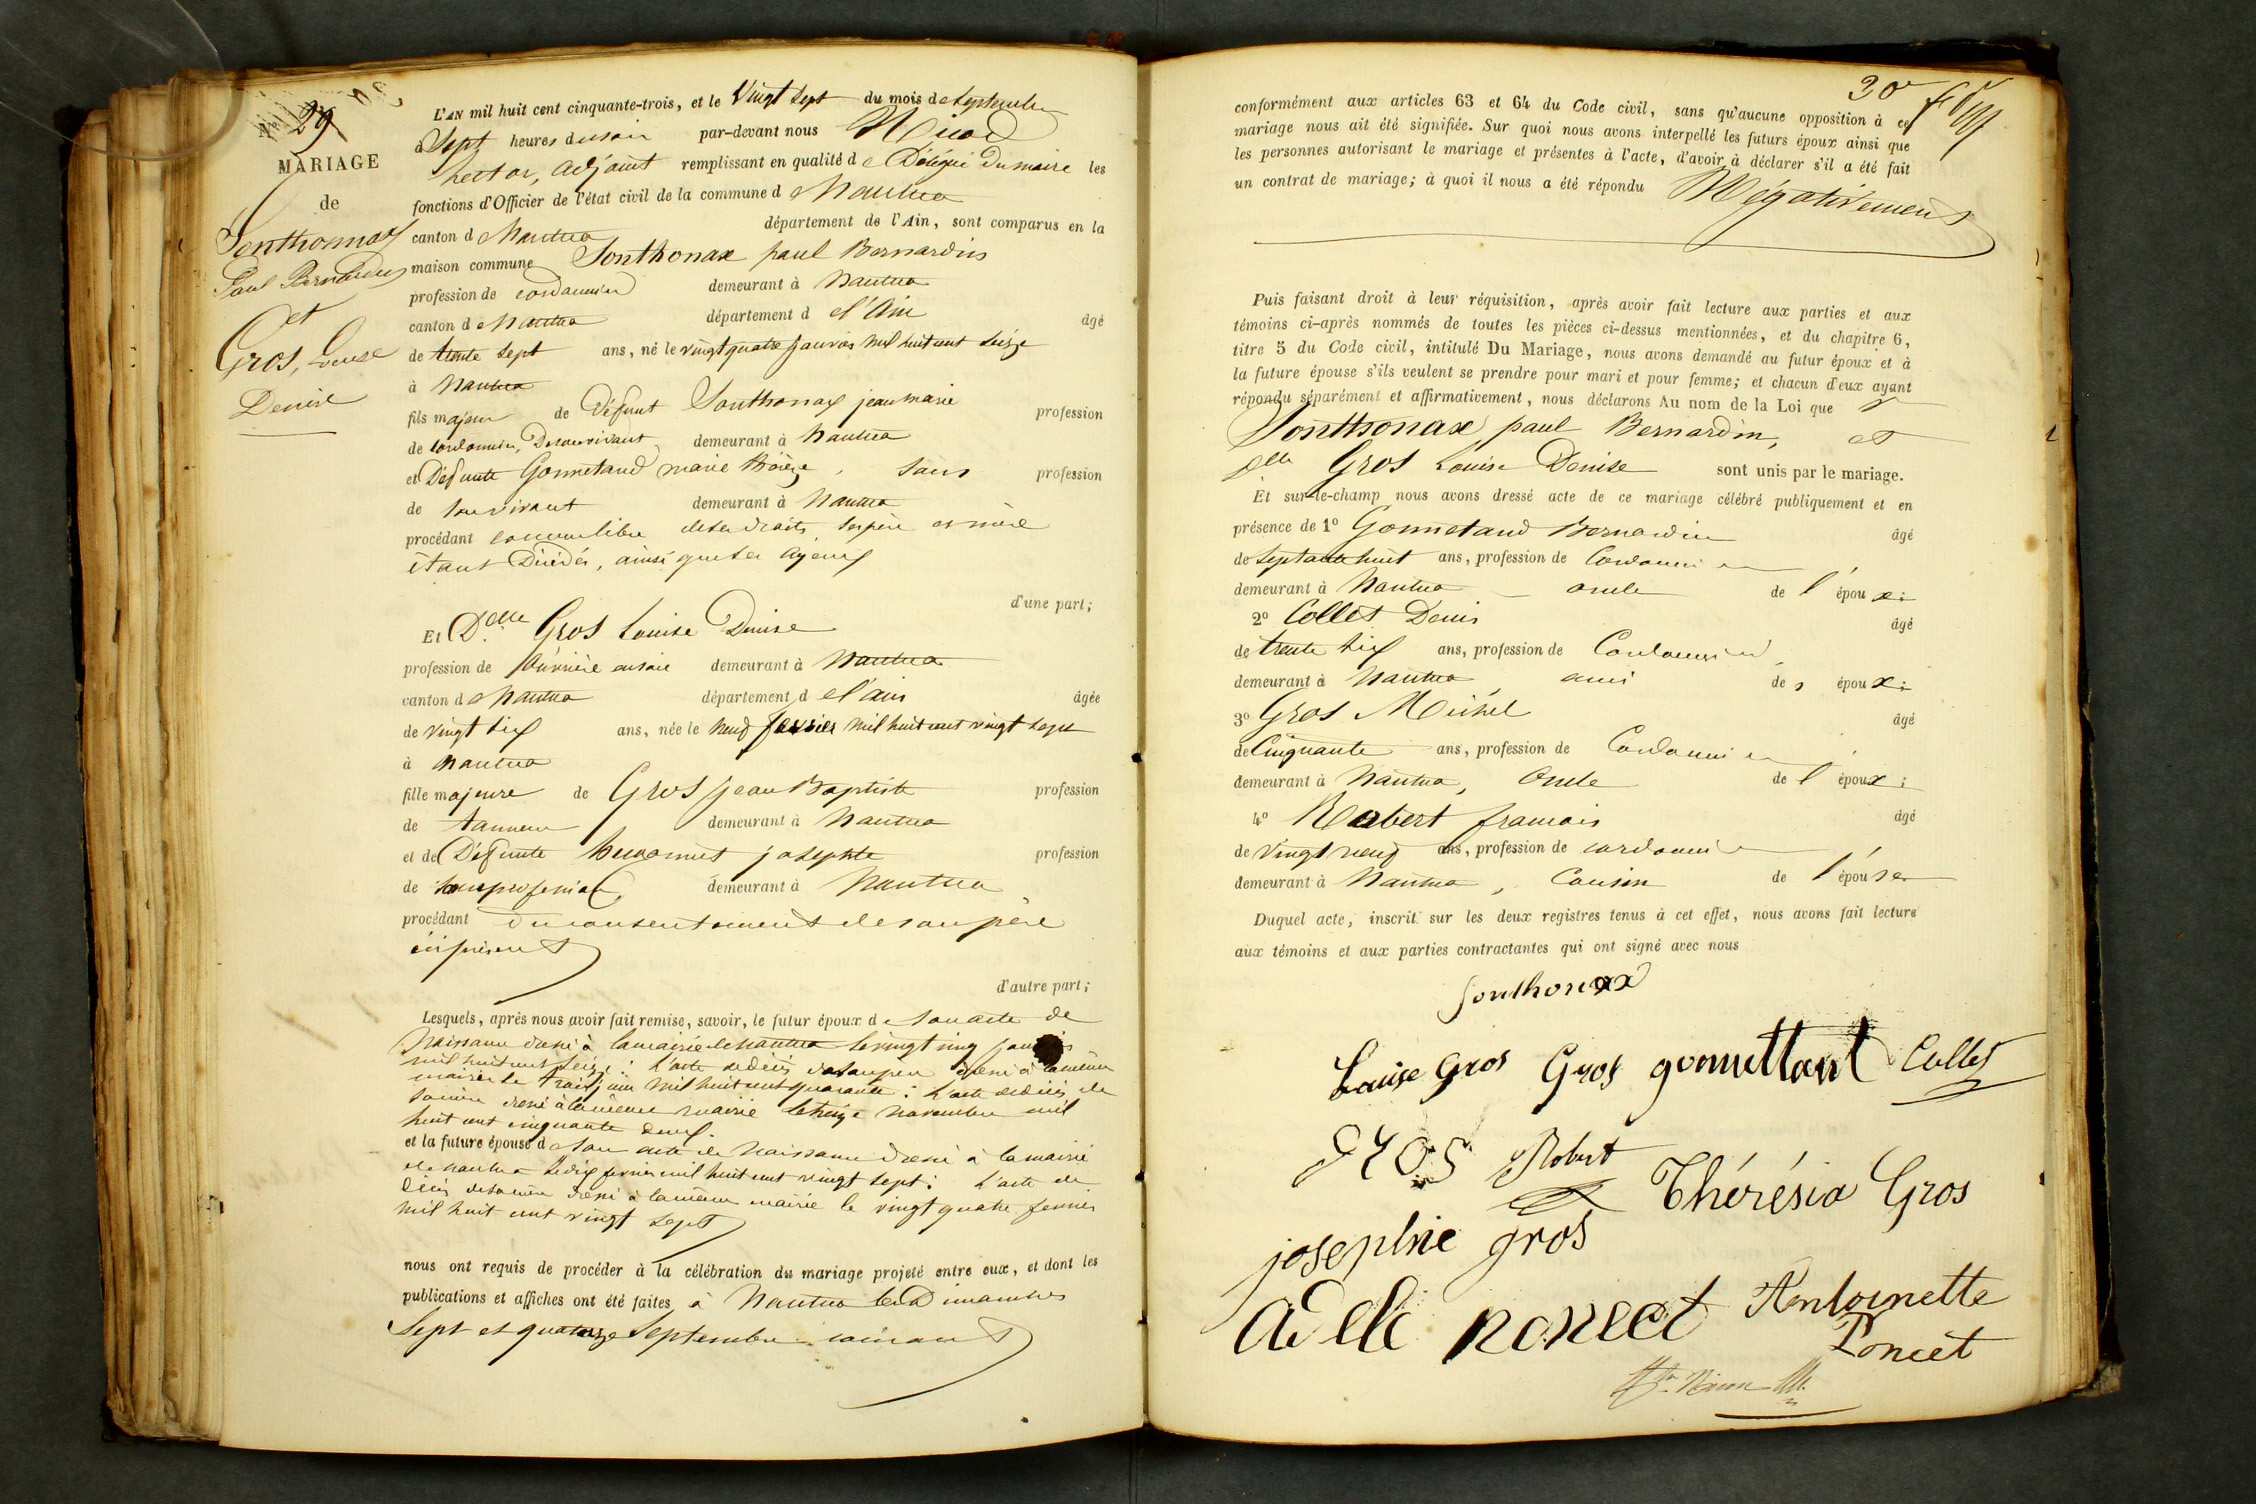 29
MARIAGE
de
Sonthonnax
Paul Bernardin
et
Gros, Louise
Denise
L'AN mil huit cent cinquante-trois, et le Vingt sept du mois de septembre
à Sept heures du soir par-devant nous Nicod
hector, adjoint remplissant en qualité de Délégué du maire les
fonctions d'Officier de l'état civil de la commune de Nantua
canton de Nantua département de l'Ain, sont comparus en la
maison commune Sonthonax paul Bernardin
profession de cordonnier demeurant à Nantua
canton de Nantua département de l'Ain âgé
de trente sept ans, né le vingt quatre janvier mil huit cent seize
à Nantua
fils majeur de défunt Sonthonax jean marie profession
de cordonnier, de son vivant demeurant à Nantua
et Défunte Gonnetand marie thérèze, sans profession
de son vivant demeurant à Nantua
procédant comme libre de ses droits, ses père et mère
étant Décédés, ainsi que ses ayeux
d'une part;
Et Delle Gros Louise Denise
profession de ouvrière en soie demeurant à Nantua
canton de Nantua département de l'ain âgée
de vingt six ans, née le neuf fevrier mil huit cent vingt sept
à Nantua
fille majeure de Gros Jean Baptiste profession
de tanneur demeurant à Nantua
et de Défunte josephte profession
de sans profession demeurant à Nantua
procédant du consentement de son père
ici présent
d'autre part;
Lesquels, après nous avoir fait remise, savoir, le futur époux de son acte de
Naissance dressé à la mairie de Nantua le vingt cinq
mil huit cent seize: l'acte de décès de son père dressé à la même
mairie le trois juin mil huit cent quarante: L'acte de décès de
sa mère dressé à la même mairie le treize novembre mil
huit cent cinquante deux.
et la future épouse de son acte de Naissance dressé à la mairie
de Nantua le dix fevrier mil huit cent vingt sept: L'acte de
décès de sa mère dressé à la même mairie le vingt quatre fevrier
mil huit cent vingt sept
nous ont requis de procéder à la célébration du mariage projeté entre eux, et dont les
publications et affiches ont été faites à Nantua les Dimanches
Sept et quatorze Septembre courant
30
conformément aux articles 63 et 64 du Code civil, sans qu'aucune opposition à ce
mariage nous ait été signifiée. Sur quoi nous avons interpellé les futurs époux ainsi que
les personnes autorisant le mariage et présentes à l'acte, d'avoir à déclarer s'il a été fait
un contrat de mariage; à quoi il nous a été répondu Négativement
Puis faisant droit à leur réquisition, après avoir fait lecture aux parties et aux
témoins ci-après nommés de toutes les pièces ci-dessus mentionnées, et du chapitre 6,
titre 5 du Code civil, intitulé Du Mariage, nous avons demandé au futur époux et à
la future épouse s'ils veulent se prendre pour mari et pour femme; et chacun d'eux ayant
répondu séparément et affirmativement, nous déclarons Au nom de la Loi que
Sonthonax paul Bernardin, et
Delle Gros Louise Denise sont unis par le mariage.
Et sur-le-champ nous avons dressé acte de ce mariage célébré publiquement et en
présence de 1º Gonnetand Bernardin âgé
de septante huit ans, profession de Cordonnier
demeurant à Nantua oncle de l'époux;
2º Collet Denis âgé
de trente six ans, profession de Cordonnier,
demeurant à Nantua ami des époux;
3º Gros Michel âgé
de Cinquante ans, profession de Cordonnier,
demeurant à Nantua, oncle de l'époux;
4º Robert francois âgé
de vingt neuf ans, profession de cordonnier
demeurant à Nantua, Cousin de l'épouse
Duquel acte, inscrit sur les deux registres tenus à cet effet, nous avons fait lecture
aux témoins et aux parties contractantes qui ont signé avec nous
Sonthonax
Louise Gros Gros gonnettant Collet
gros Robert Thérésia Gros
josephie gros
Adele poncet Antoinette
Poncet